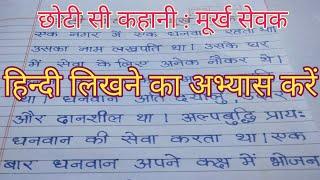 छोटी सी कहानी : मूर्ख सेवक
एक नगर में एक धनवान रहता था।
उसका नाम लखपति था। उसके घर
में सेवा के लिए अनेक नौकर थे।
हिन्दी लिखने का अभ्यास करें
था। धनवान अति दयालु,
और दानशील था। अल्पबुद्धि प्रायः
धनवान की सेवा करता था। एक
बार धनवान अपने कक्ष में भोजन